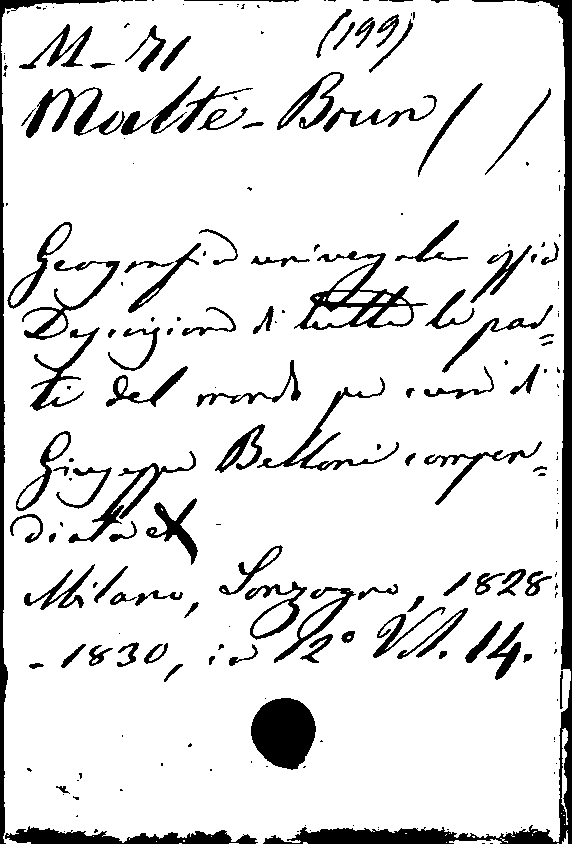 M-71 (199)
Malte-Brun ( )
Geografia universale ossia
Descrizione di tutte le par=
ti del mondo per cura di
Giuseppe Belloni compen=
diata
Milano, Sonzogno, 1828
-1830, in 12° Vol. 14.